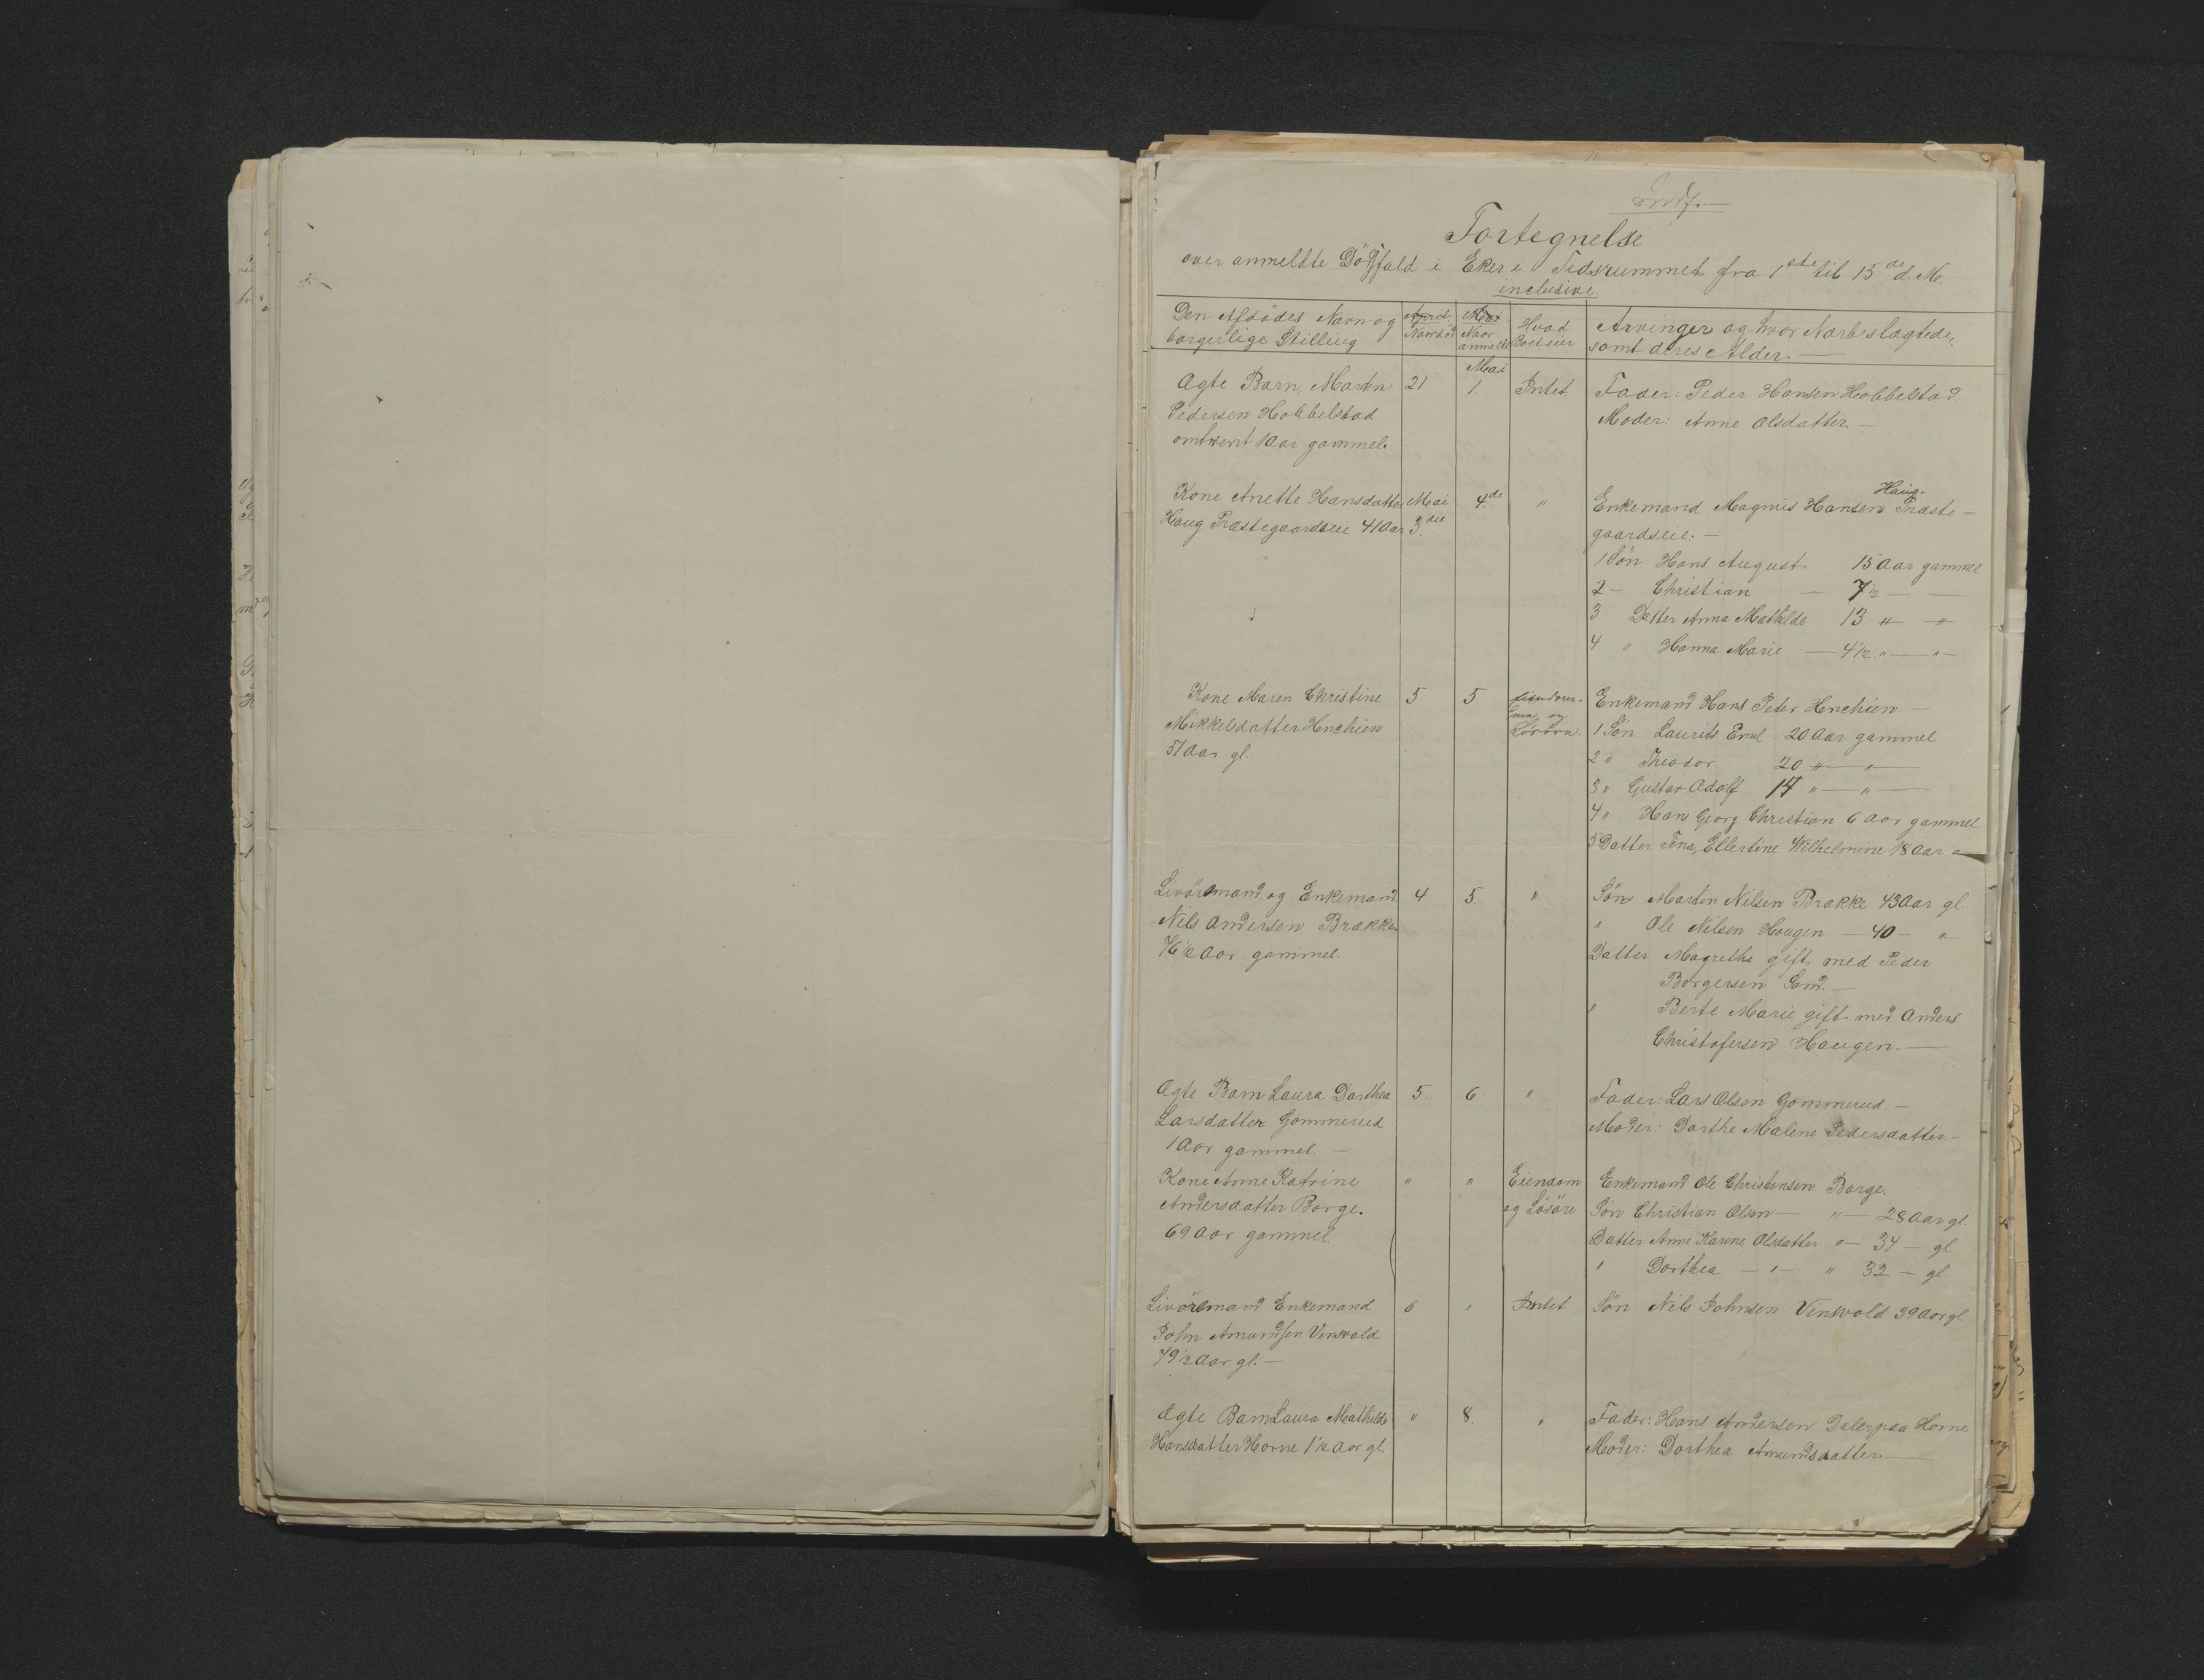 Indf.
Fortegnelse
over anmeldte Dödsfald i Eker i Tidsrummet fra 1ste til 15de d. M.
inclusive
Den Afdödes Navn og borgerlige Stilling
April Naar död
Mai Naar anmeldt
Hvad Boet eier
Arvinger og hvor Nærbeslægtede, samt deres Alder. —
Mai
Ægte Barn, Martin 21 1. Intet Fader: Peder Hansen Hobbelstad
Pedersen Hobbelstad Moder: Anne Olsdatter. —
omtrent 1 Aar gammel.
Kone Anette Hansdatter Mai 4.de " Enkemand Magnus Hansen Haug Præste-
Haug Præstegaardseie 41 Aar 3.die gaardseie. —
1 Sön Hans August 15 Aar gammel
2 — Christian — 7 1/2 — —
3 Datter Anna Mathilde 13 " — "
4 " Hanna Marie — 4 1/2 " — " —
Kone Maren Christine 5 5 Eiendom- Enkemand Hans Peter Henchien —
Mikkelsdatter Henchien og 1 Sön Laurits Emil 20 Aar gammel
51 Aar gl. 2 " Theodor 20 " — " —
3 " Gustav Adolf 14 " — " —
4 " Hans Georg Christian 6 Aar gammel
5 Datter Tina, Ellertine Wilhelmine 18 Aar "
Livöremand og Enkemand 4 5 " Sön Martin Nilsen Brække 43 Aar gl.
Nils Andersen Brække " Ole Nilsen Haugen — 40 — "
76 1/2 Aar gammel. Datter Magrethe gift med Peder
Borgersen Sand. —
" Berte Marie gift med Anders
Christofersen Haugen. —
Ægte Barn Laura Dorthea 5. 6 " Fader: Lars Olsen Gommerud —
Larsdatter Gommerud Moder: Dorthe Malene Pedersdatter —
1 Aar gammel. —
Kone Anne Katrine " " Eiendom Enkemand Ole Christensen Borge.
Andersdatter Borge. og Lösöre Sön Christian Olsen — " — 28 Aar gl.
69 Aar gammel Datter Anne Karine Olsdatter " — 34 — gl.
" Dorthea — " — " 32 — gl.
Livöremand Enkemand 6 " Intet Sön Nils Johnsen Vinsvold 39 Aar gl.
John Amundsen Vinsvold
79 1/2 Aar gl. —
Ægte Barn Laura Mathilde " 8. " Fader: Hans Andersen Dalerpaa Horne
Hansdatter Horne 1 1/2 Aar gl. Moder: Dorthea Amundsdatter —